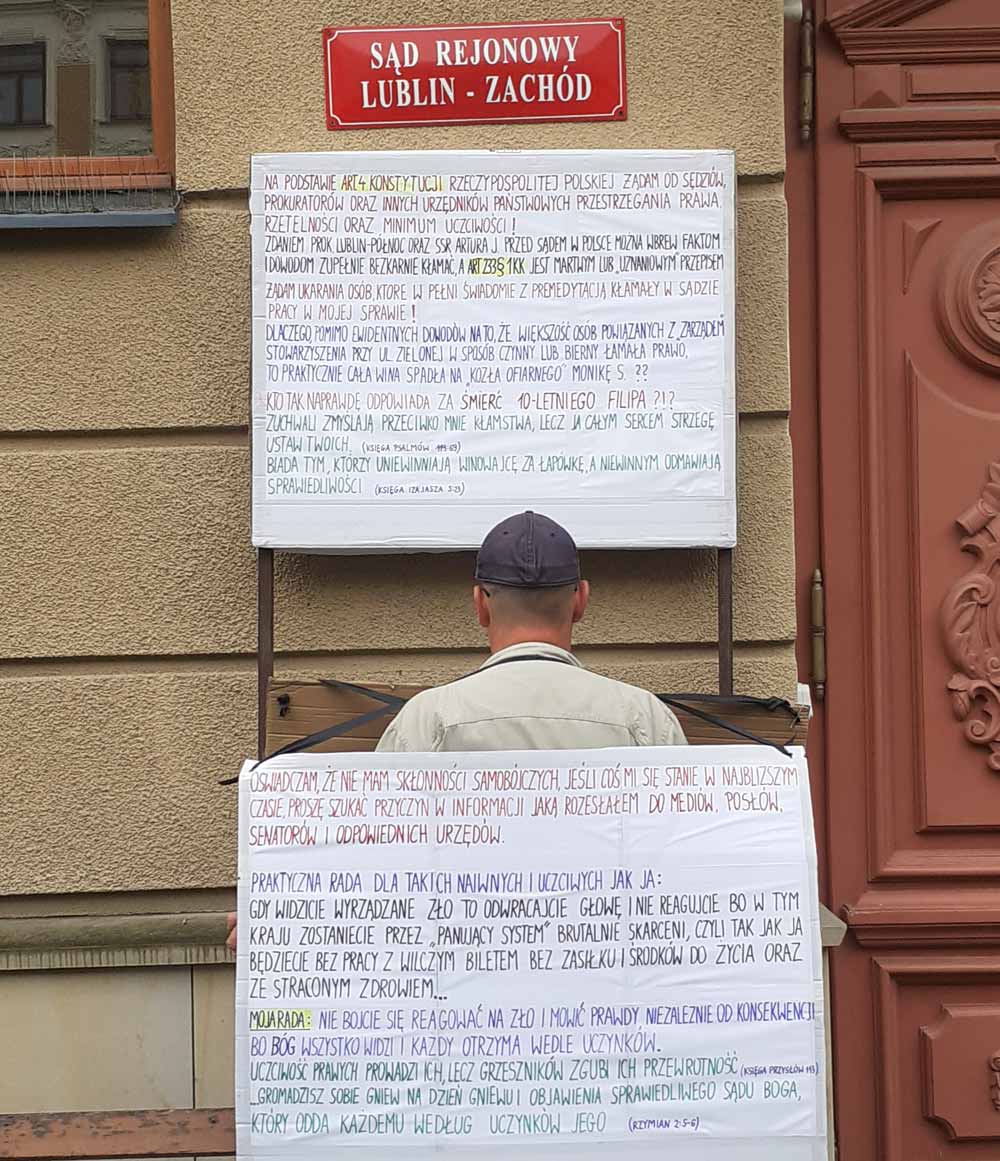 SĄD REJONOWY
LUBLIN - ZACHÓD
NA PODSTAWIE ART.4 KONSTYTUCJI RZECZYPOSPOLITEJ POLSKIEJ ŻĄDAM OD SĘDZIÓW,
PROKURATORÓW ORAZ INNYCH URZĘDNIKÓW PAŃSTWOWYCH PRZESTRZEGANIA PRAWA,
RZETELNOŚCI ORAZ MINIMUM UCZCIWOŚCI!
ZDANIEM PROK. LUBLIN-PÓŁNOC ORAZ SSR ARTURA J. PRZED SĄDEM W POLSCE MOŻNA WBREW FAKTOM
I DOWODOM ZUPEŁNIE BEZKARNIE KŁAMAĆ, A ART 233 § 1 KK JEST MARTWYM LUB „UZNANIOWYM" PRZEPISEM
ŻĄDAM UKARANIA OSÓB, KTÓRE W PEŁNI ŚWIADOMIE Z PREMEDYTACJĄ KŁAMAŁY W SĄDZIE
PRACY W MOJEJ SPRAWIE!
DLACZEGO, POMIMO EWIDENTNYCH DOWODÓW NA TO, ŻE WIĘKSZOŚĆ OSÓB POWIĄZANYCH Z „ZARZĄDEM"
STOWARZYSZENIA PRZY UL. ZIELONEJ W SPOSÓB CZYNNY LUB BIERNY ŁAMAŁA PRAWO,
TO PRAKTYCZNIE CAŁA WINA SPADŁA NA „KOZŁA OFIARNEGO" MONIKĘ S. ??
KTO TAK NAPRAWDĘ ODPOWIADA ZA ŚMIERĆ 10-LETNIEGO FILIPA ?!?
ZUCHWALI ZMYŚLAJĄ PRZECIWKO MNIE KŁAMSTWA, LECZ JA CAŁYM SERCEM STRZEGĘ
USTAW TWOICH. (KSIĘGA PSALMÓW 119:69)
BIADA TYM, KTÓRZY UNIEWINNIAJĄ WINOWAJCĘ ZA ŁAPÓWKĘ, A NIEWINNYM ODMAWIAJĄ
SPRAWIEDLIWOŚCI (KSIĘGA IZAJASZA 5:23)
OŚWIADCZAM, ŻE NIE MAM SKŁONNOŚCI SAMOBÓJCZYCH, JEŚLI COŚ MI SIĘ STANIE W NAJBLIŻSZYM
CZASIE, PROSZĘ SZUKAĆ PRZYCZYN W INFORMACJI JAKĄ ROZESŁAŁEM DO MEDIÓW, POSŁÓW,
SENATORÓW I ODPOWIEDNICH URZĘDÓW.
PRAKTYCZNA RADA DLA TAKICH NAIWNYCH I UCZCIWYCH JAK JA:
GDY WIDZICIE WYRZĄDZANE ZŁO TO ODWRACAJCIE GŁOWĘ I NIE REAGUJCIE BO W TYM
KRAJU ZOSTANIECIE PRZEZ „PANUJĄCY SYSTEM" BRUTALNIE SKARCENI, CZYLI TAK JAK JA
BĘDZIECIE BEZ PRACY Z WILCZYM BILETEM BEZ ZASIŁKU I ŚRODKÓW DO ŻYCIA ORAZ
ZE STRACONYM ZDROWIEM...
MOJA RADA: NIE BOJCIE SIĘ REAGOWAĆ NA ZŁO I MÓWIĆ PRAWDY NIEZALEŻNIE OD KONSEKWENCJI
BO BÓG WSZYSTKO WIDZI I KAŻDY OTRZYMA WEDLE UCZYNKÓW.
UCZCIWOŚĆ PRAWYCH PROWADZI ICH, LECZ GRZESZNIKÓW ZGUBI ICH PRZEWROTNOŚĆ (KSIĘGA PRZYSŁÓW 11:3)
...GROMADZISZ SOBIE GNIEW NA DZIEŃ GNIEWU I OBJAWIENIA SPRAWIEDLIWEGO SĄDU BOGA,
KTÓRY ODDA KAŻDEMU WEDŁUG UCZYNKÓW JEGO (RZYMIAN 2:5-6)